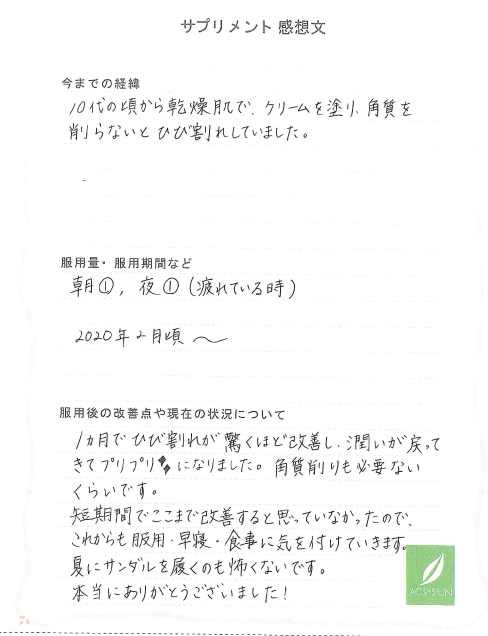 サプリメント 感想文
今までの経緯
10代の頃から乾燥肌で、クリームを塗り、角質を
削らないと ひび割れしていました。
服用量・服用期間など
朝①, 夜① (疲れている時)
2020年2月頃 〜
服用後の改善点や現在の状況について
1ヵ月で ひび割れが 驚くほど改善し、潤いが戻って
きてプリプリ になりました。角質削りも必要ない
くらいです。
短期間でここまで改善すると思っていなかったので、
これからも服用・早寝・食事に気を付けていきます。
夏にサンダルを履くのも怖くないです。
本当にありがとうございました!
ACSYSUN